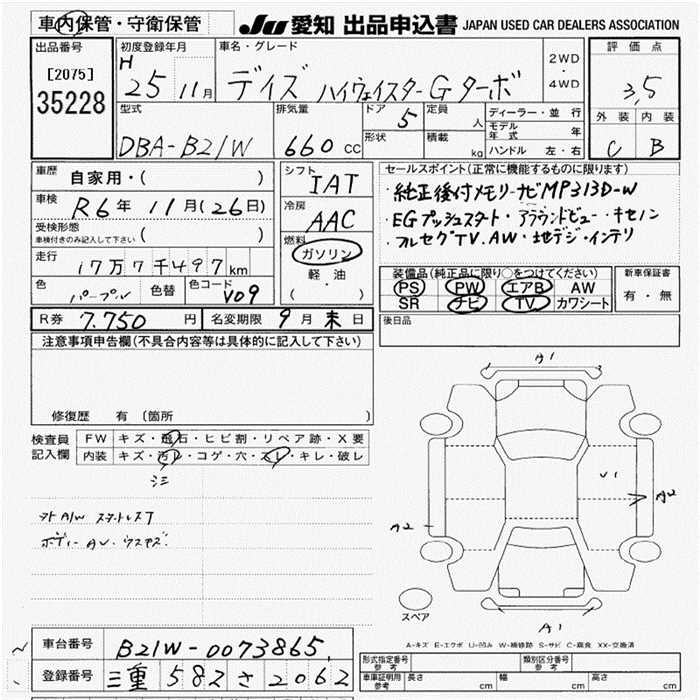 車内保管・守衛保管
JU 愛知 出品申込書 JAPAN USED CAR DEALERS ASSOCIATION
出品番号
[2075]
35228
初度登録年月
H 25 11月
車名・グレード
デイズ ハイウェイスターGターボ
2WD
・
4WD
評価点
3,5
外装 内装
C B
型式
DBA-B21W
排気量
660 CC
ドア 5
形状
定員 人
積載 kg
ディーラー・並行
モデル年式 年
ハンドル 左・右
車歴
自家用・( )
車検
R6年 11月(26日)
受検形態
車検付きのみ記入して下さい ( )
走行
17万7千497km
色
パープル
色替
色コード V09
シフト
IAT
冷房
AAC
燃料
ガソリン
軽油
( ・ )
セールスポイント(正常に機能するものに限ります)
・純正後付メモリーナビMP313D-W
・EGプッシュスタート・アラウンドビュー・キセノン
・フルセグTV.AW・地デジ・インテリ
装備品(純正品に限り〇をつけてください)
PS PW エアB AW
SR ナビ TV カワシート
新車保証書
有・無
R券 7.750 円
名変期限 9月末日
後日品
注意事項申告欄(不具合内容等は具体的に記入して下さい)
修復歴 有 (箇所
検査員
記入欄
FW キズ・飛石・ヒビ割・リペア跡・X要
内装 キズ・汚レ・コゲ・穴・スレ・キレ・破レ
シミ
外A/W スタットレスT
ボディー AU・ウスキズ
A1
U1
A2
A2
A1
スペア
A-キズ E-エクボ U-凹み W-補修跡 S-サビ C-腐食 XX-交換済
車台番号
B21W-0073865
登録番号
三重 582 さ 2062
形式指定番号
参考
類別区分番号
参考
車庫証明用
参考
長さ cm
幅 cm
高さ cm